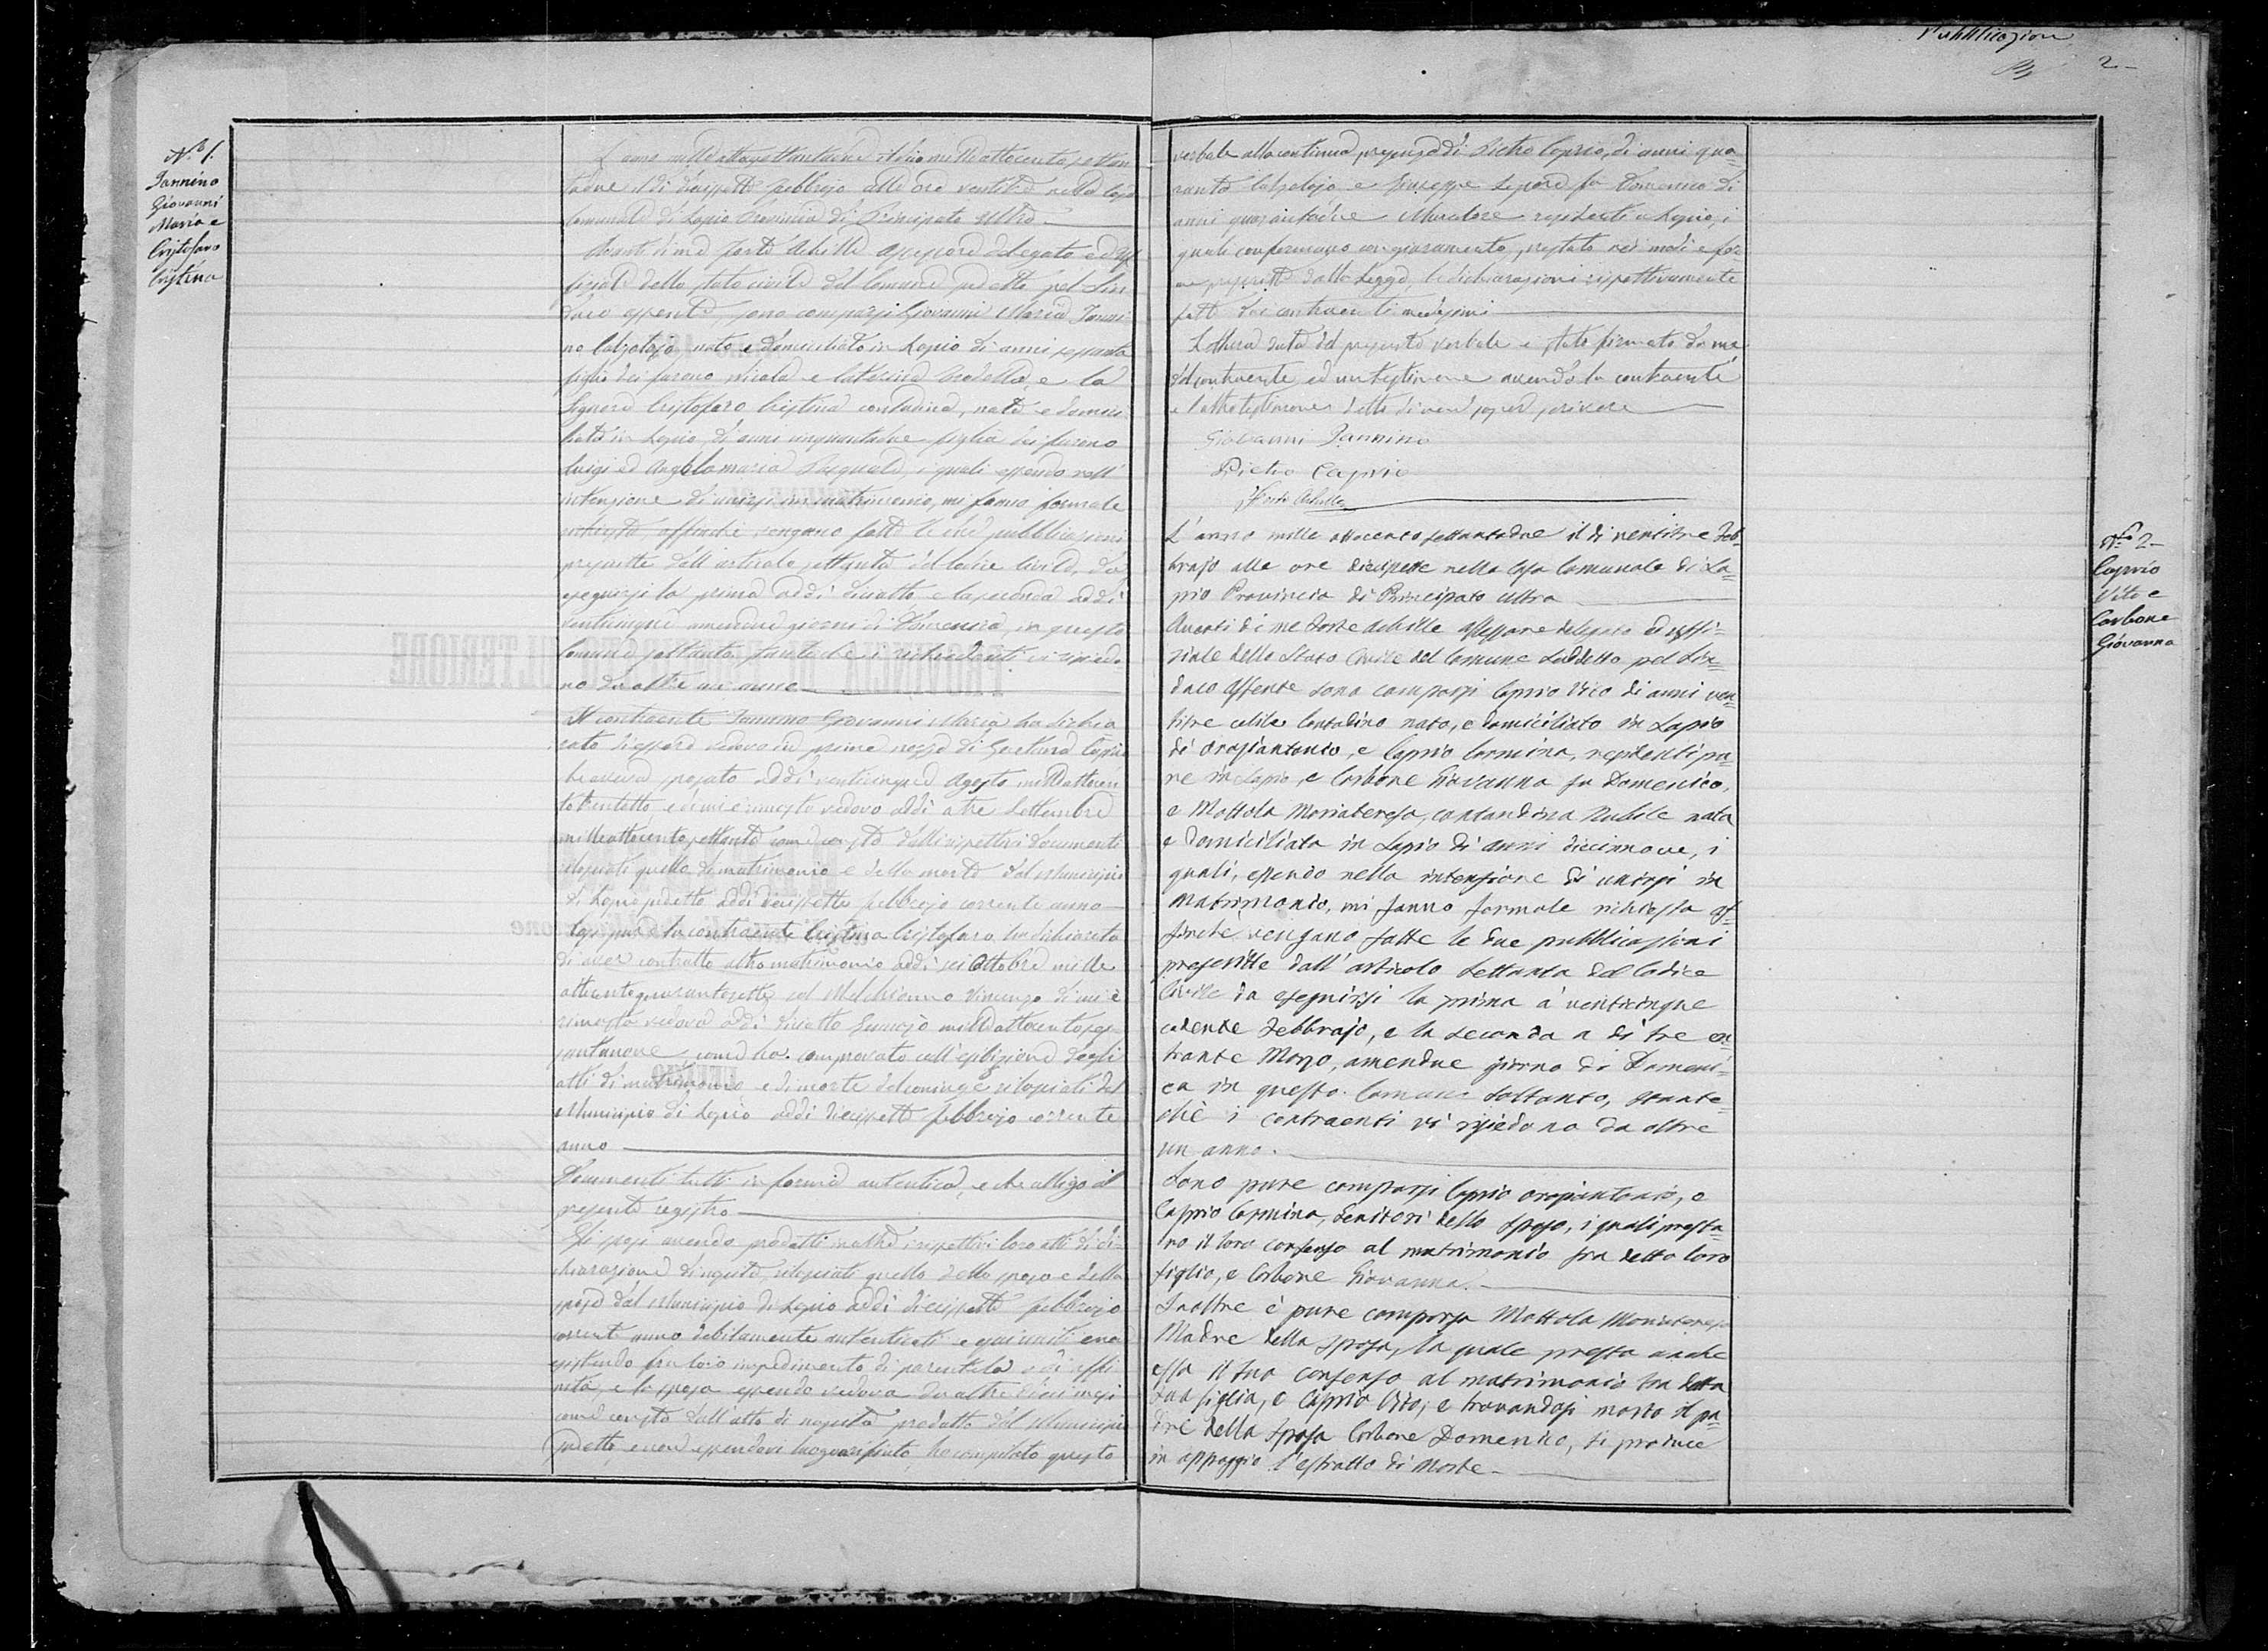 Pubblicazioni
2-
N.º 1.
Iannino
Giovanni
Maria e
Cristofaro
Cristina
L'anno milleottocentosettan
tadue il dì diciassette febbrajo alle ore ventitre nella casa
Comunale di Lapio Provincia di Principato Ultra
Avanti di me Forte Achille Assessore delegato ed Uf
fiziale dello stato civile del Comune sudetto pel Sin
daco assente, sono comparsi Giovanni Maria Ianni
no Calzolajo, nato e domiciliato in Lapio di anni sessanta
figlio dei furono Nicola e Caterina e la
Signora Cristofaro Cristina contadina, nata e domici
liata in Lapio, di anni cinquantadue figlia dei furono
Luigi ed Angelamaria Pasquale, i quali essendo nell'
intenzione di unirsi in matrimonio, mi fanno formale
richiesta affinchè vengano fatte le due pubblicazioni
prescritte dall'articolo settanta del Codice Civile, da
eseguirsi la prima addì diciotto e la seconda addì
venticinque amendue giorni di Domenica, in questo
Comune soltanto, stante che i richiedenti vi risiedo
no da oltre un anno
Il contraente Iannino Giovanni Maria ha dichia
rato d'essere vedovo in prime nozze di Caprio
che aveva sposato addì venticinque Agosto milleottocen
totrentotto, e di cui è rimasto vedovo addì a tre Settembre
milleottocentosettanta come consta dalli rispettivi documenti
rilasciati quello di matrimonio e della morte dal Municipio
di Lapio sudetto addì diciassette febbrajo corrente anno
Eppure la contraente Cristina Cristofaro ha dichiarato
di aver contratto altro matrimonio addì sei Ottobre mille
ottocentoquarantasette col Melchionno Vincenzo di cui è
rimasta vedova addì diciotto Gennajo milleottocentoses
santanove, come ha comprovato coll'esibizione degli
atti di matrimonio e di morte del coniuge rilasciati dal
Municipio di Lapio addì diciassette febbrajo corrente
anno
Documenti tutti in forma autentica, e che alligo al
presente registro
Gli sposi avendo prodotti inoltre i rispettivi loro atti di di
chiarazione di nascita, rilasciati quello dello sposo e della
sposa dal Municipio di Lapio addì diciassette febbrajo
corrente anno debitamente autenticati e non
esistendo fra loro impedimento di parentela o di affi
nità, e la sposa essendo vedova da oltre dieci mesi
come consta dall'atto di nascita prodotto dal Municipio
sudetto, e non essendovi ho compilato questo
verbale alla continua presenza di Pietro Caprio, di anni qua-
ranta Calzolajo e Giuseppe fu Domenico di
anni quarantadue Muratore residenti a Lapio, i
quali confermano con giuramento, prestato nei modi e for
me prescritte dalla Legge, le dichiarazioni rispettivamente
fatte dai contraenti medesimi
Lettura data del presente verbale è stato firmato da me
dal contraente, ed un testimone avendo la contraente
e l'altro testimone detto di non saper scrivere
Giovanni Iannino
Pietro Caprio
Forte Achille
N.º 2-
Caprio
Vito e
Carbone
Giovanna
L'anno mille ottocento settantadue il dì ventitre Feb-
brajo alle ore diciasette nella Casa Comunale di La=
pio Provincia di Principato Ultra
Avanti di me Forte Achille Assessore delegato ed uffi=
ziale dello Stato Civile del Comune suddetto pel Sin=
daco Assente sono comparsi Caprio Vito di anni ven=
titre celibe Contadino nato, e domiciliato in Lapio
di Oraziantonio, e Caprio Carmina, residenti pu=
re in Lapio, e Carbone Giovanna fu Domenico,
e Mottola Mariateresa, contandina Nubile nata
e domiciliata in Lapio di anni diecinnove, i
quali, essendo nella intenzione di unirsi in
Matrimonio, mi fanno formale richiesta af=
finchè vengano fatte le due pubblicazioni
prescritte dall'articolo settanta del Codice
Civile da eseguirsi la prima a venticinque
cadente Febbrajo, e la seconda a dì tre en
trante Marzo, amendue giorno di Domeni=
ca in questo Comune soltanto, stante=
chè i contraenti vi risiedono da oltre
un anno.
Sono pure comparsi Caprio Oraziantonio, e
Caprio Carmina, Genitori dello sposo, i quali presta=
no il loro consenso al matrimonio fra detto loro
figlio, e Carbone Giovanna.
Inoltre è pure comparsa Mottola Mariateresa
Madre della sposa, la quale presta anche
essa il suo consenso al matrimonio tra detta
sua figlia, e Caprio Vito, e trovandosi morto il pa=
dre della sposa Carbone Domenico, si produce
in appoggio l'estratto di Morte.